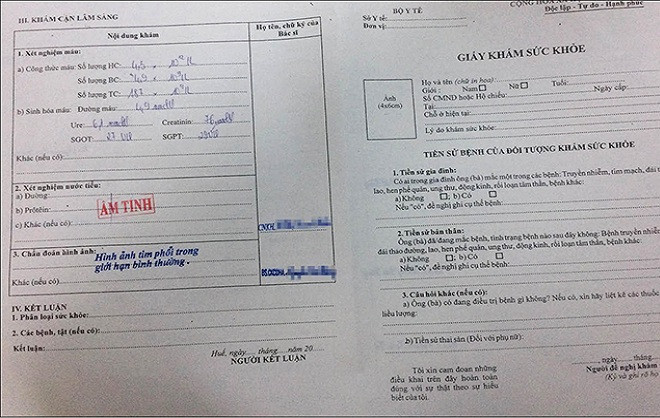 III. KHÁM CẬN LÂM SÀNG
Nội dung khám
Họ tên, chữ ký của Bác sĩ
1. Xét nghiệm máu:
a) Công thức máu: Số lượng HC: 4,5 × 10¹² /L
Số lượng BC: 4,9 × 10⁹ /L
Số lượng TC: 187 × 10⁹ /L
b) Sinh hóa máu: Đường máu: 4,9
Ure: Creatinin: 76
SGOT: 27 SGPT:
Khác (nếu có):
2. Xét nghiệm nước tiểu:
a) Đường:
b) Prôtêin:
ÂM TÍNH
c) Khác (nếu có):
CNKH.
3. Chẩn đoán hình ảnh:
Hình ảnh tim phổi trong
giới hạn bình thường.
Khác (nếu có):
IV. KẾT LUẬN
1. Phân loại sức khỏe:
2. Các bệnh, tật (nếu có):
Kết luận:
Huế, ngày.... tháng.... năm 20
NGƯỜI KẾT LUẬN
BỘ Y TẾ
Số Y tế:
Đơn vị:
Độc lập - Tự do - Hạnh phúc
GIẤY KHÁM SỨC KHỎE
Ảnh
(4x6cm)
Họ và tên (chữ in hoa):
Giới: Nam Nữ Tuổi:
Số CMND hoặc Hộ chiếu: Ngày cấp:
Tại:
Chỗ ở hiện tại:
Lý do khám sức khỏe:
TIỀN SỬ BỆNH CỦA ĐỐI TƯỢNG KHÁM SỨC KHỎE
1. Tiền sử gia đình:
Có ai trong gia đình ông (bà) mắc một trong các bệnh: Truyền nhiễm, tim mạch, đái
lao, hen phế quản, ung thư, động kinh, rối loạn tâm thần, bệnh khác:
a) Không ; b) Có
Nếu "có", đề nghị ghi cụ thể bệnh:
2. Tiền sử bản thân:
Ông (bà) đã đang mắc bệnh, tình trạng bệnh nào sau đây không: Bệnh truyền nhiễm,
đái tháo đường, lao, hen phế quản, ung thư, động kinh, rối loạn tâm thần, bệnh khác:
a) Không ; b) Có
Nếu "có", đề nghị ghi cụ thể bệnh:
3. Câu hỏi khác (nếu có):
a) Ông (bà) có đang điều trị bệnh gì không? Nếu có, xin hãy liệt kê các thuốc
liều lượng:
b) Tiền sử thai sản (Đối với phụ nữ):
Tôi xin cam đoan những
điều khai trên đây hoàn toàn
đúng với sự thật theo sự hiểu
biết của tôi.
, ngày...... tháng
Người đề nghị khám
(Ký và ghi rõ họ